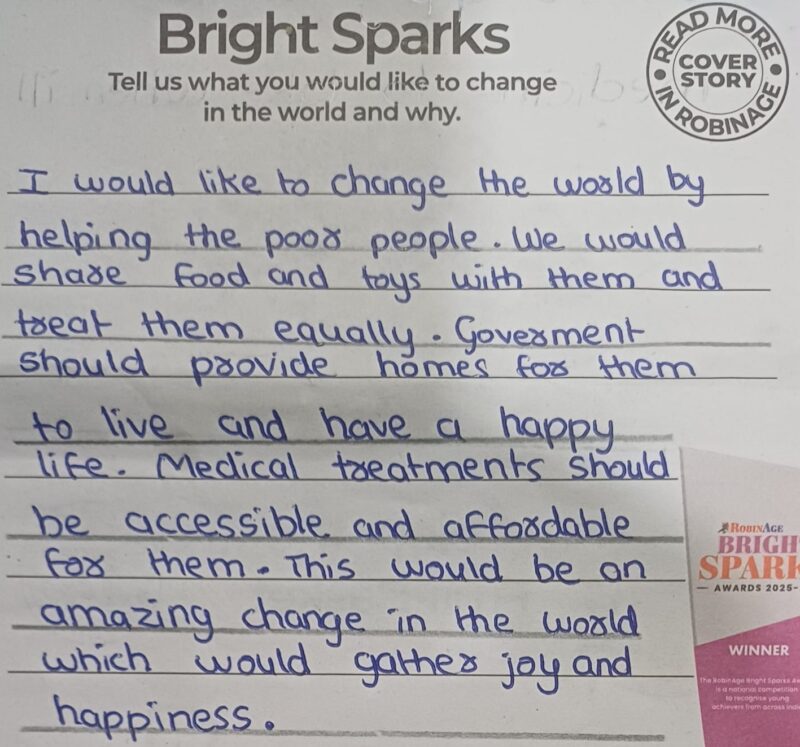 Bright Sparks
Tell us what you would like to change
in the world and why.
READ MORE
COVER
STORY
IN ROBINAGE
I would like to change the world by
helping the poor people. We would
share food and toys with them and
treat them equally. Goverment
should provide homes for them
to live and have a happy
life. Medical treatments should
be accessible and affordable
for them. This would be an
amazing change in the world
which would gather joy and
happiness.
ROBINAGE
BRIGH
SPARK
AWARDS 2025-
WINNER
The RobinAge Bright Sparks Aw
is a national competition
to recognise young
achievers from across Indi